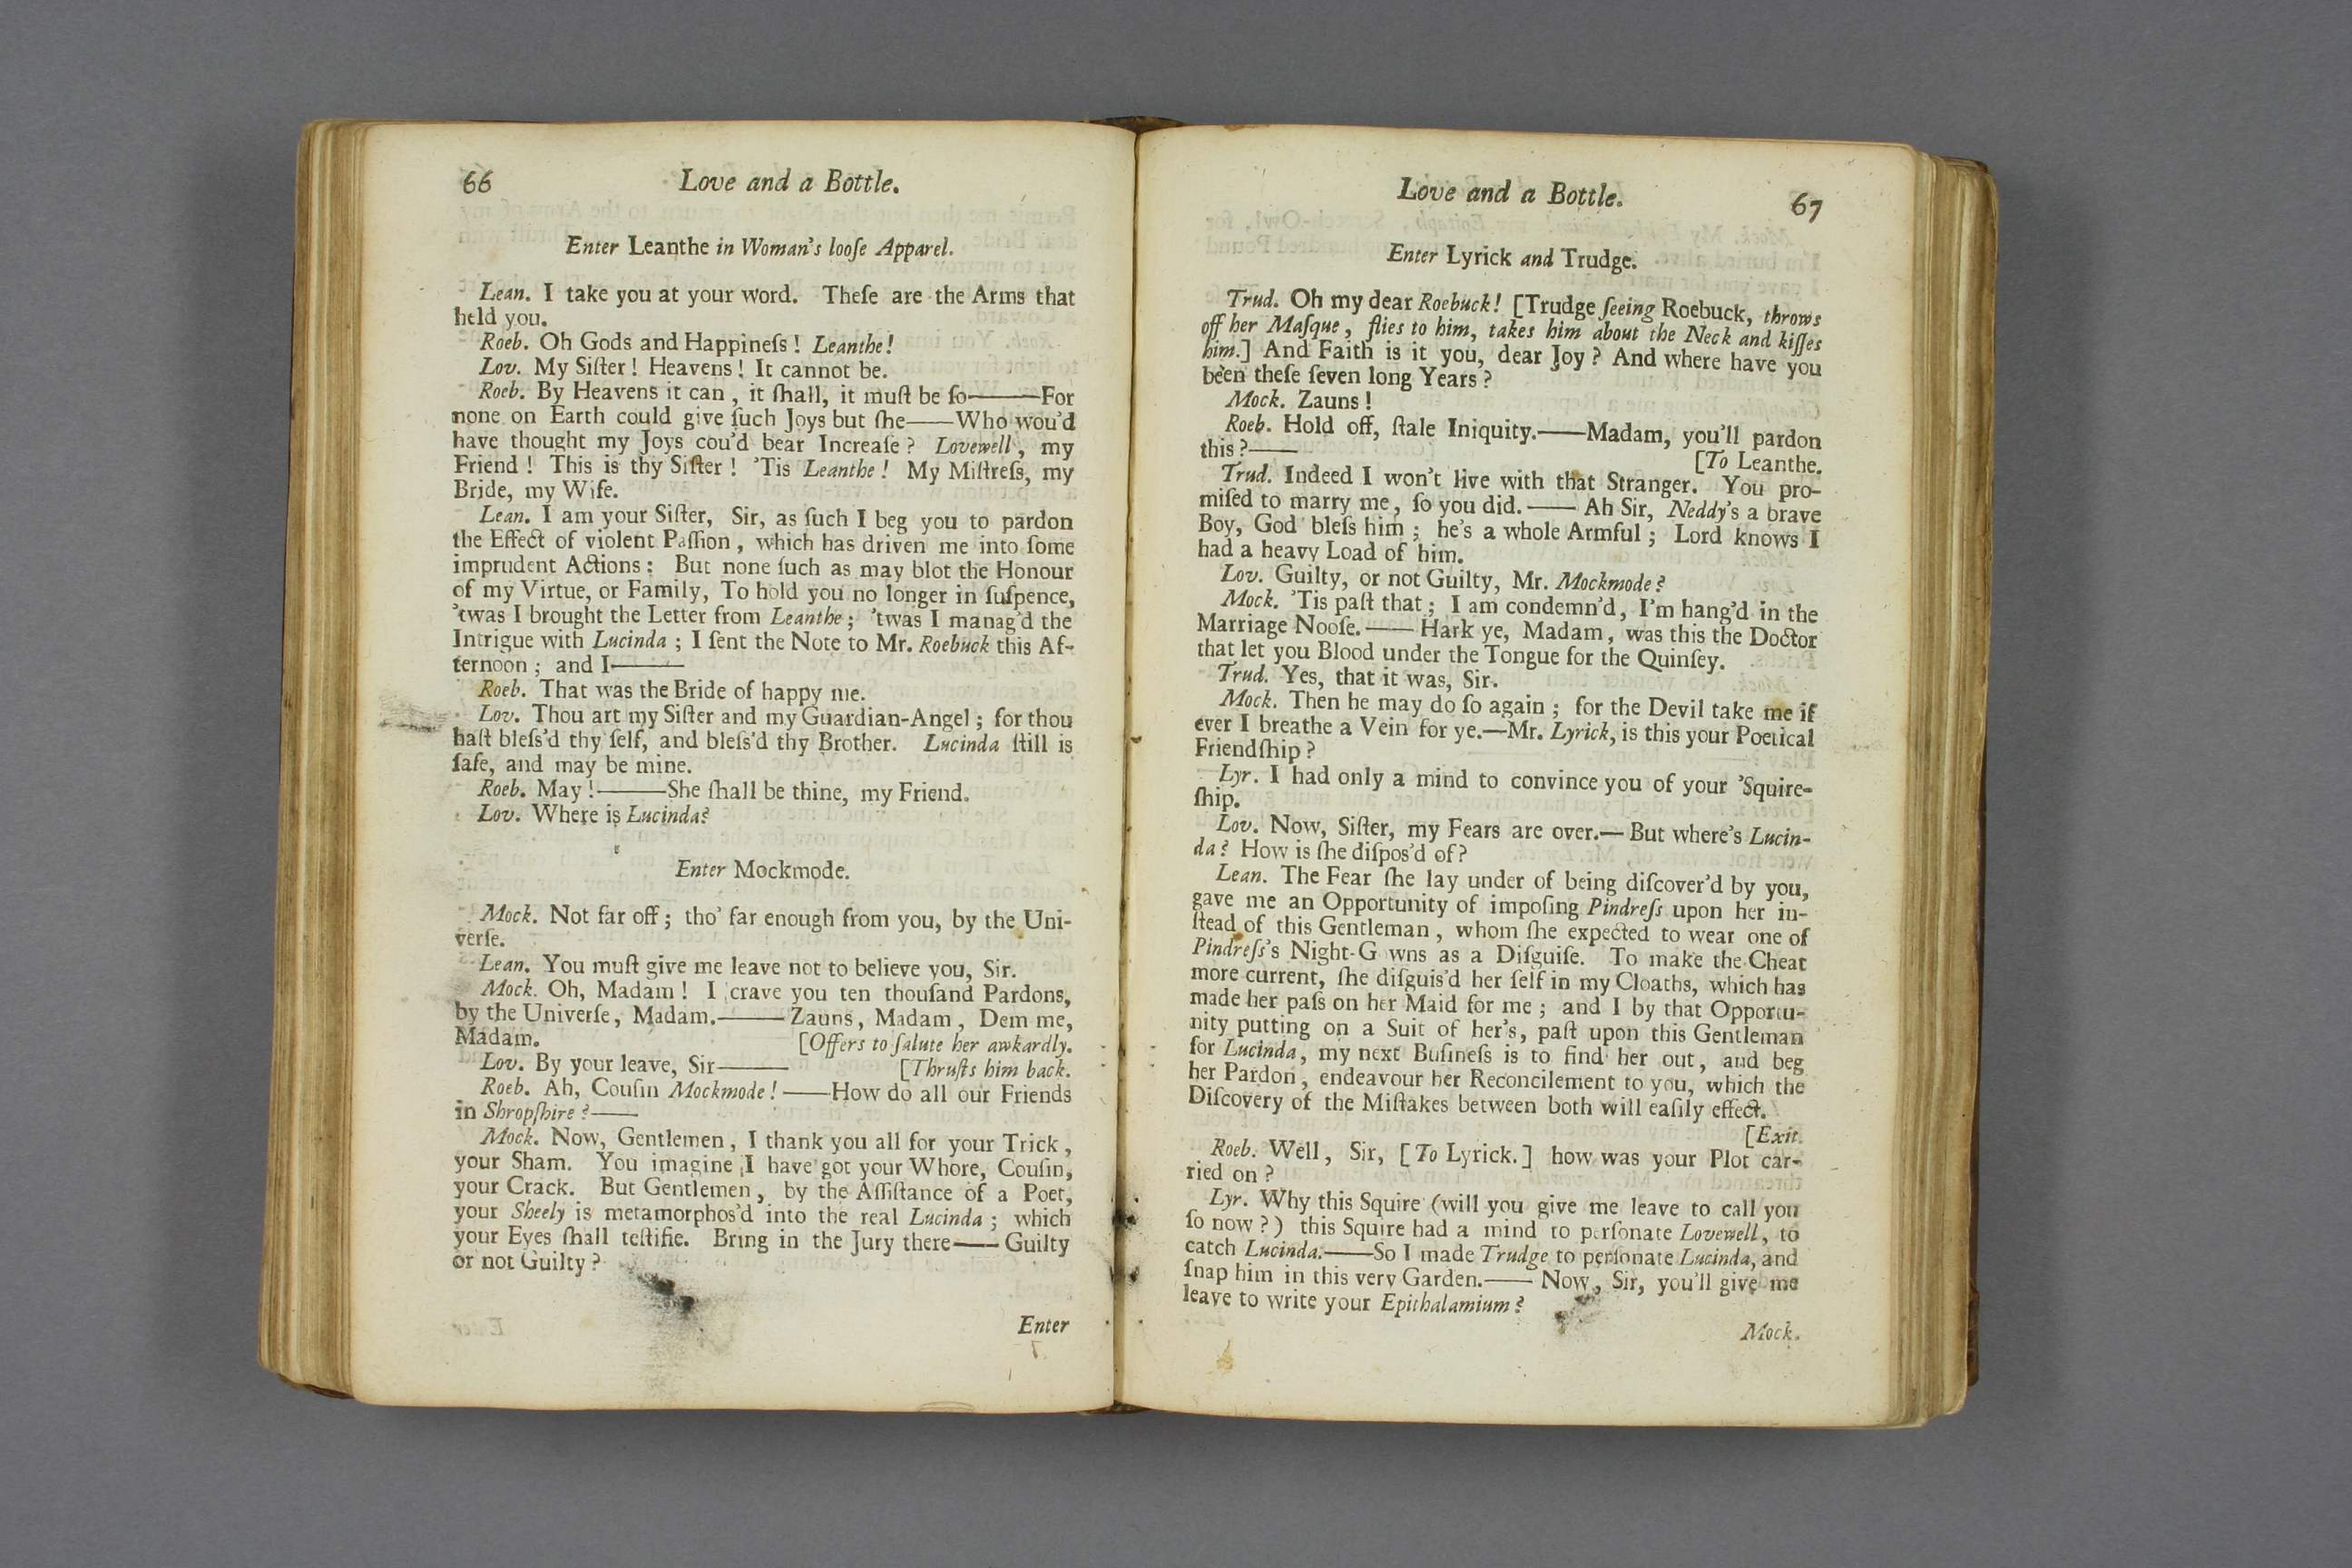 66
Love and a Bottle.
Enter Leanthe in Woman's looſe Apparel.
Lean. I take you at your word. Theſe are the Arms that
held you.
Roeb. Oh Gods and Happineſs! Leanthe!
Lov. My Siſter! Heavens! It cannot be.
Roeb. By Heavens it can, it ſhall, it muſt be ſo——For
none on Earth could give ſuch Joys but ſhe——Who wou'd
have thought my Joys cou'd bear Increaſe? Lovewell, my
Friend! This is thy Siſter! 'Tis Leanthe! My Miſtreſs, my
Bride, my Wife.
Lean. I am your Siſter, Sir, as ſuch I beg you to pardon
the Effect of violent Paſſion, which has driven me into ſome
imprudent Actions: But none ſuch as may blot the Honour
of my Virtue, or Family, To hold you no longer in ſuſpence,
'twas I brought the Letter from Leanthe; 'twas I manag'd the
Intrigue with Lucinda; I ſent the Note to Mr. Roebuck this Af-
ternoon; and I——
Roeb. That was the Bride of happy me.
Lov. Thou art my Siſter and my Guardian-Angel; for thou
haſt bleſs'd thy ſelf, and bleſs'd thy Brother. Lucinda ſtill is
ſafe, and may be mine.
Roeb. May!——She ſhall be thine, my Friend.
Lov. Where is Lucinda?
Enter Mockmode.
Mock. Not far off; tho' far enough from you, by the Uni-
verſe.
Lean. You muſt give me leave not to believe you, Sir.
Mock. Oh, Madam! I crave you ten thouſand Pardons,
by the Univerſe, Madam.——Zauns, Madam, Dem me,
Madam. [Offers to ſalute her awkardly.
Lov. By your leave, Sir—— [Thruſts him back.
Roeb. Ah, Couſin Mockmode!——How do all our Friends
in Shropſhire?——
Mock. Now, Gentlemen, I thank you all for your Trick,
your Sham. You imagine I have got your Whore, Couſin,
your Crack. But Gentlemen, by the Aſſiſtance of a Poet,
your Sheely is metamorphos'd into the real Lucinda; which
your Eyes ſhall teſtifie. Bring in the Jury there——Guilty
or not Guilty?
Enter
Love and a Bottle.
67
Enter Lyrick and Trudge.
Trud. Oh my dear Roebuck! [Trudge ſeeing Roebuck, throws
off her Maſque, flies to him, takes him about the Neck and kiſſes
him.] And Faith is it you, dear Joy? And where have you
been theſe ſeven long Years?
Mock. Zauns!
Roeb. Hold off, ſtale Iniquity.——Madam, you'll pardon
this?—— [To Leanthe.
Trud. Indeed I won't live with that Stranger. You pro-
miſed to marry me, ſo you did.——Ah Sir, Neddy's a brave
Boy, God bleſs him; he's a whole Armful; Lord knows I
had a heavy Load of him.
Lov. Guilty, or not Guilty, Mr. Mockmode?
Mock. 'Tis paſt that; I am condemn'd, I'm hang'd in the
Marriage Nooſe.——Hark ye, Madam, was this the Doctor
that let you Blood under the Tongue for the Quinſey.
Trud. Yes, that it was, Sir.
Mock. Then he may do ſo again; for the Devil take me if
ever I breathe a Vein for ye.—Mr. Lyrick, is this your Poetical
Friendſhip?
Lyr. I had only a mind to convince you of your 'Squire-
ſhip.
Lov. Now, Siſter, my Fears are over.—But where's Lucin-
da? How is ſhe diſpos'd of?
Lean. The Fear ſhe lay under of being diſcover'd by you,
gave me an Opportunity of impoſing Pindreſs upon her in-
ſtead of this Gentleman, whom ſhe expected to wear one of
Pindreſs's Night-G wns as a Diſguiſe. To make the Cheat
more current, ſhe diſguis'd her ſelf in my Cloaths, which has
made her paſs on her Maid for me; and I by that Opportu-
nity putting on a Suit of her's, paſt upon this Gentleman
for Lucinda, my next Buſineſs is to find her out, and beg
her Pardon, endeavour her Reconcilement to you, which the
Diſcovery of the Miſtakes between both will eaſily effect.
[Exit.
Roeb. Well, Sir, [To Lyrick.] how was your Plot car-
ried on?
Lyr. Why this Squire (will you give me leave to call you
ſo now?) this Squire had a mind to perſonate Lovewell, to
catch Lucinda.——So I made Trudge to perſonate Lucinda, and
ſnap him in this very Garden.——Now, Sir, you'll give me
leave to write your Epithalamium?
Mock.